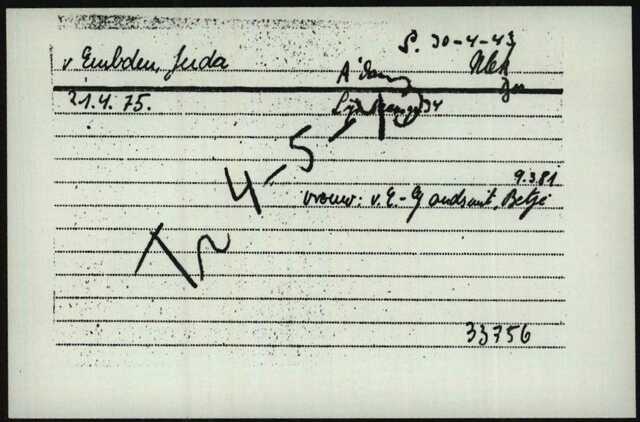 S. 30-4-43
v Embden, Juda
A'dam
21.4.75.
34
Tr 4-5
9.3.81
vrouw: v. E.-Goudsmit, Betje
33756